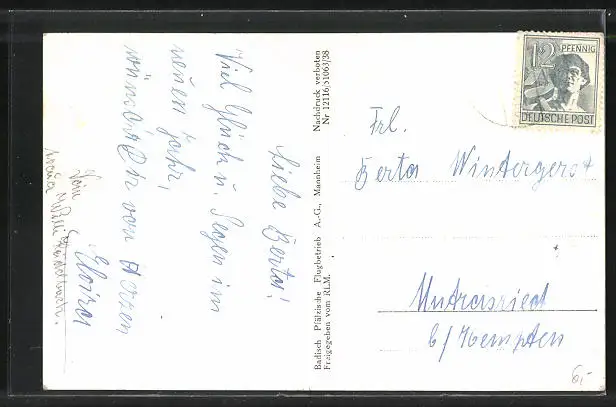 Liebe Berta!
Viel Glück u. Segen im
neuen Jahr,
wünscht von Herzen
Elvira
Badisch Pfälzische Flugbetrieb A.-G., Mannheim
Freigegeben vom RLM.
Nachdruck verboten
Nr 12116/51063/38
12 PFENNIG
DEUTSCHE POST
Frl.
Berta Wintergerst
Untrasried
b/Kempten
6,-